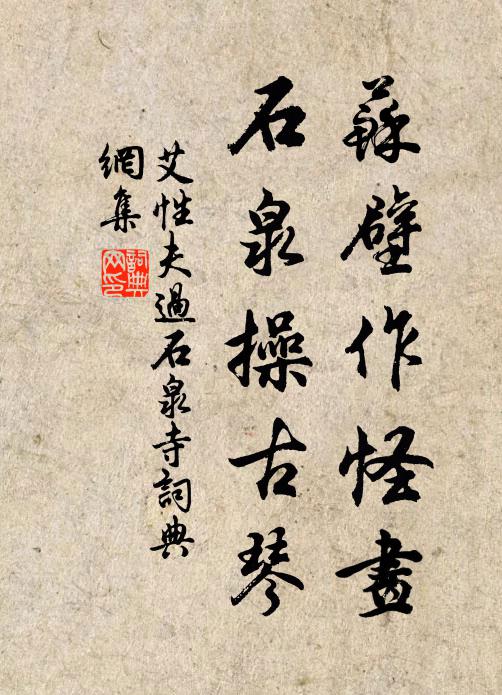 蘇壁作怪畫
石泉操古琴
艾性夫過石泉寺詞典
網集
詞典
网印